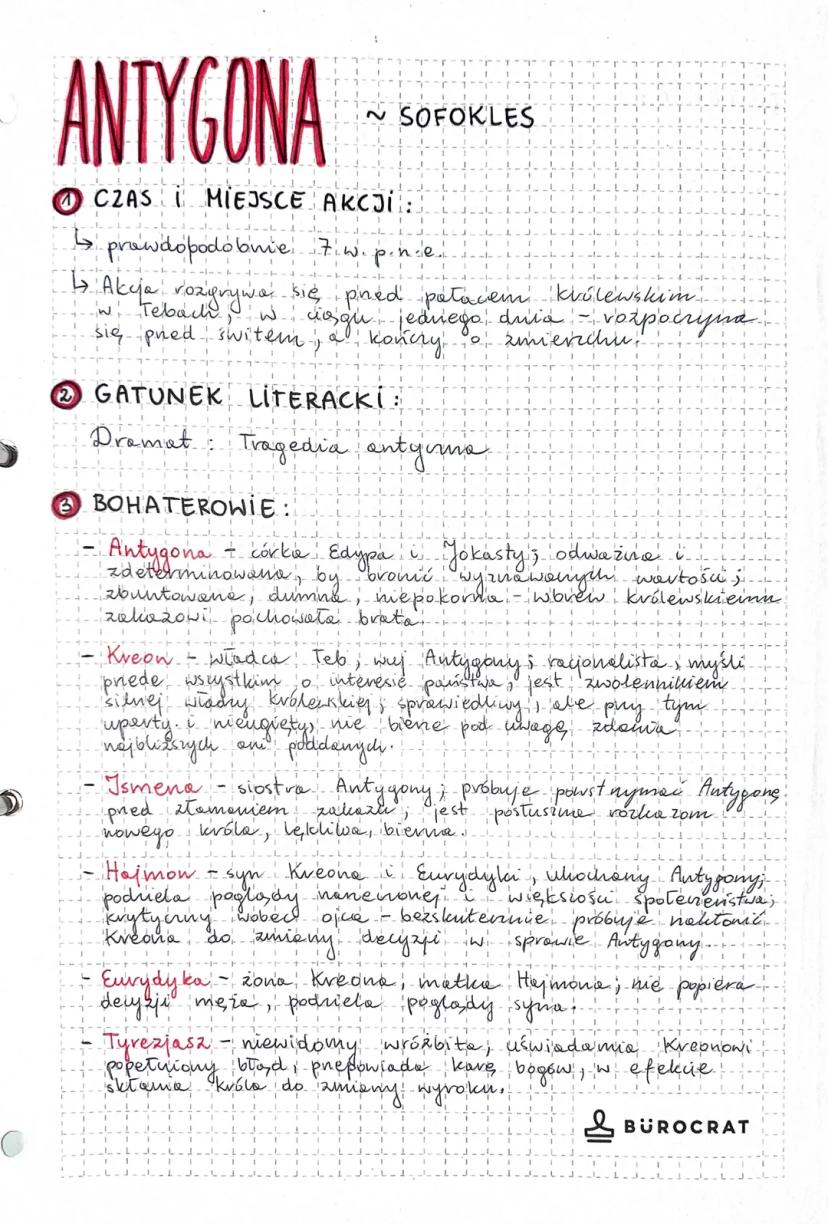 ANTYGONA ~ SOFOKLES
1 CZAS i MIEJSCE AKCJI:
↳ prawdopodobnie 7 w. p.n.e.
↳ Akcja rozgrywa się przed pałacem królewskim
w Tebach, w ciągu jednego dnia - rozpoczyna
się przed świtem, a kończy o zmierzchu.
2 GATUNEK LITERACKI:
Dramat: Tragedia antyczna
3 BOHATEROWIE:
- Antygona - córka Edypa i Jokasty; odważna i
zdeterminowana, by bronić wyznawanych wartości;
zbuntowana, dumna, niepokorna - wbrew królewskiemu
zakazowi pochowała brata.
- Kreon - władca Teb, wuj Antygony; racjonalista, myśli
przede wszystkim o interesie państwa, jest zwolennikiem
silnej władzy królewskiej; sprawiedliwy, ale przy tym
uparty i nieugięty, nie bierze pod uwagę zdania
najbliższych ani poddanych.
- Ismena - siostra Antygony; próbuje powstrzymać Antygonę
przed złamaniem zakazu, jest posłuszna rozkazom
nowego króla, lękliwa, bierna.
- Hajmon - syn Kreona i Eurydyki, ukochany Antygony;
podziela poglądy narzeczonej i większości społeczeństwa;
krytyczny wobec ojca - bezskutecznie próbuje nakłonić
Kreona do zmiany decyzji w sprawie Antygony.
- Eurydyka - żona Kreona, matka Hajmona; nie popiera
decyzji męża, podziela poglądy syna.
- Tyrezjasz - niewidomy wróżbita; uświadamia Kreonowi
popełniony błąd i przepowiada karę bogów, w efekcie
skłania króla do zmiany wyroku.
BÜROCRAT